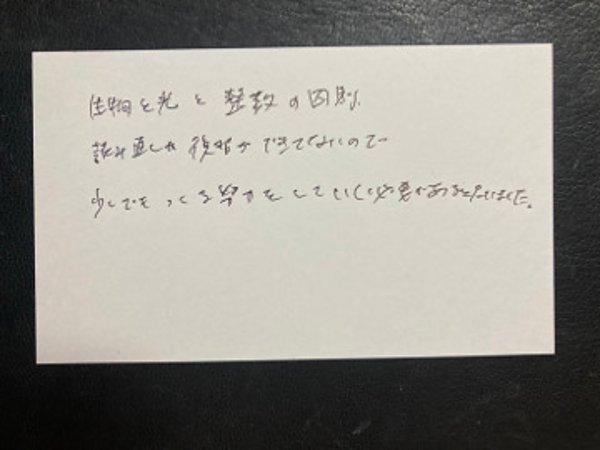 生物と光と整数の四則、
読み直しや復習ができてないので
少しでもつくる努力をしていく必要があると思いました。